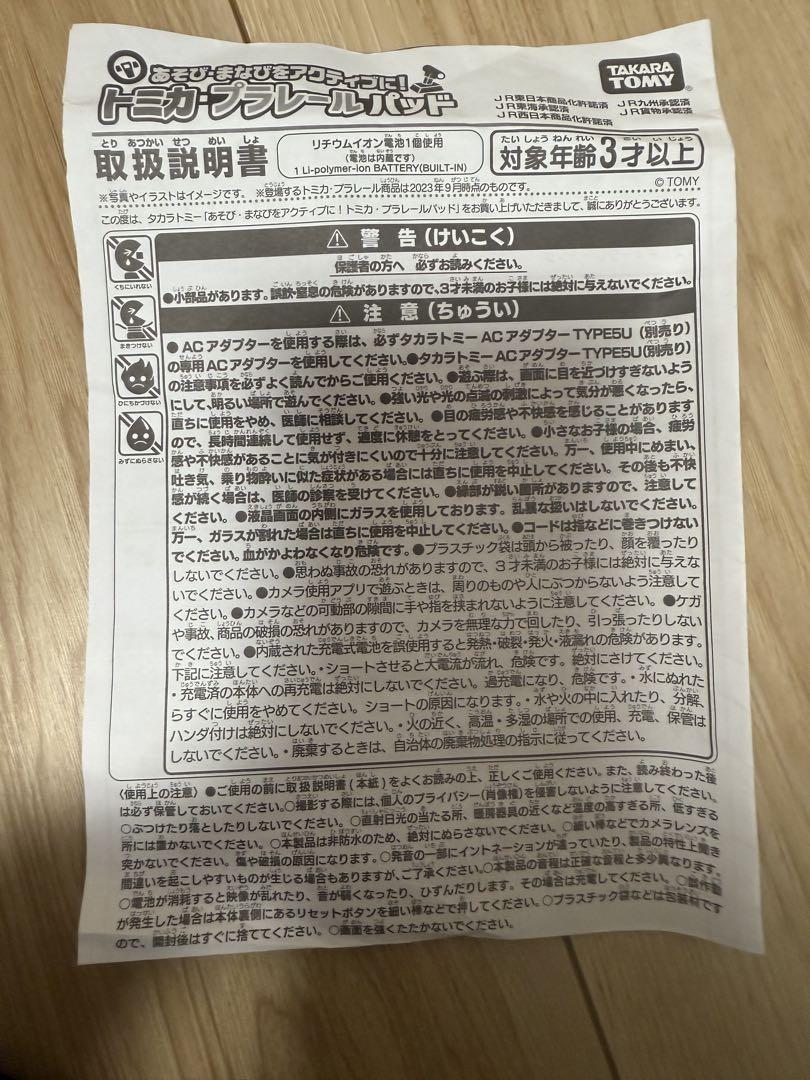 あそび・まなびをアクティブに！
トミカ・プラレールパッド
TAKARA TOMY
JR東日本商品化許諾済 JR九州承認済
JR東海承認済 JR貨物承認済
JR西日本商品化許諾済
取扱説明書
とりあつかいせつめいしょ
リチウムイオン電池1個使用
（電池は内蔵です）
1 Li-polymer-ion BATTERY(BUILT-IN)
対象年齢3才以上
たいしょうねんれい いじょう
© TOMY
※写真やイラストはイメージです。 ※登場するトミカ・プラレール商品は2023年9月時点のものです。
この度は、タカラトミー「あそび・まなびをアクティブに！トミカ・プラレールパッド」をお買い上げいただきまして、誠にありがとうございます。
くちにいれない
まきつけない
ひにちかづけない
みずにぬらさない
⚠ 警告（けいこく）
保護者の方へ 必ずお読みください。
●小部品があります。誤飲・窒息の危険がありますので、3才未満のお子様には絶対に与えないでください。
⚠ 注意（ちゅうい）
●ACアダプターを使用する際は、必ずタカラトミーACアダプターTYPE5U（別売り）
の専用ACアダプターを使用してください。●タカラトミーACアダプターTYPE5U（別売り）
の注意事項を必ずよく読んでからご使用ください。●遊ぶ際は、画面に目を近づけすぎないよう
にして、明るい場所で遊んでください。●強い光や光の点滅の刺激によって気分が悪くなったら、
直ちに使用をやめ、医師に相談してください。●目の疲労感や不快感を感じることがあります
ので、長時間連続して使用せず、適度に休憩をとってください。●小さなお子様の場合、疲労
感や不快感があることに気が付きにくいので十分に注意してください。万一、使用中にめまい、
吐き気、乗り物酔いに似た症状がある場合には直ちに使用を中止してください。その後も不快
感が続く場合は、医師の診察を受けてください。●縁部が鋭い箇所がありますので、注意して
ください。●液晶画面の内側にガラスを使用しております。乱暴な扱いはしないでください。
万一、ガラスが割れた場合は直ちに使用を中止してください。●コードは指などに巻きつけない
でください。血がかよわなくなり危険です。●プラスチック袋は頭から被ったり、顔を覆ったり
しないでください。●思わぬ事故の恐れがありますので、3才未満のお子様には絶対に与えな
いでください。●カメラ使用アプリで遊ぶときは、周りのものや人にぶつからないよう注意して
ください。●カメラなどの可動部の隙間に手や指を挟まれないように注意してください。●ケガ
や事故、商品の破損の恐れがありますので、カメラを無理な力で回したり、引っ張ったりしない
でください。●内蔵された充電式電池を誤使用すると発熱・破裂・発火・液漏れの危険があります。
下記に注意してください。・ショートさせると大電流が流れ、危険です。絶対にさけてください。
・充電済の本体への再充電は絶対にしないでください。過充電になり、危険です。・水にぬれた
らすぐに使用をやめてください。ショートの原因になります。・水や火の中に入れたり、分解、
ハンダ付けは絶対にしないでください。・火の近く、高温・多湿の場所での使用、充電、保管は
しないでください。・廃棄するときは、自治体の廃棄物処理の指示に従ってください。
〈使用上の注意〉●ご使用の前に取扱説明書（本紙）をよくお読みの上、正しくご使用ください。また、読み終わった後
は必ず保管しておいてください。○撮影する際には、個人のプライバシー（肖像権）を侵害しないように注意してください。
○ぶつけたり落としたりしないでください。○直射日光の当たる所、暖房器具の近くなど温度の高すぎる所、低すぎる
所には置かないでください。○本製品は非防水のため、絶対にぬらさないでください。○細い棒などでカメラレンズを
突かないでください。傷や破損の原因になります。○発音の一部にイントネーションが違っていたり、製品の特性上聞き
間違いを起こしやすいものが生じる場合もありますが、ご了承ください。○本製品の音程は正確な音程と多少異なります。
○電池が消耗すると映像が乱れたり、音が弱くなったり、ひずんだりします。その場合は充電してください。○誤作動
が発生した場合は本体裏側にあるリセットボタンを細い棒などで押してください。○プラスチック袋などは包装材です
ので、開封後はすぐに捨ててください。○画面を強くたたかないでください。